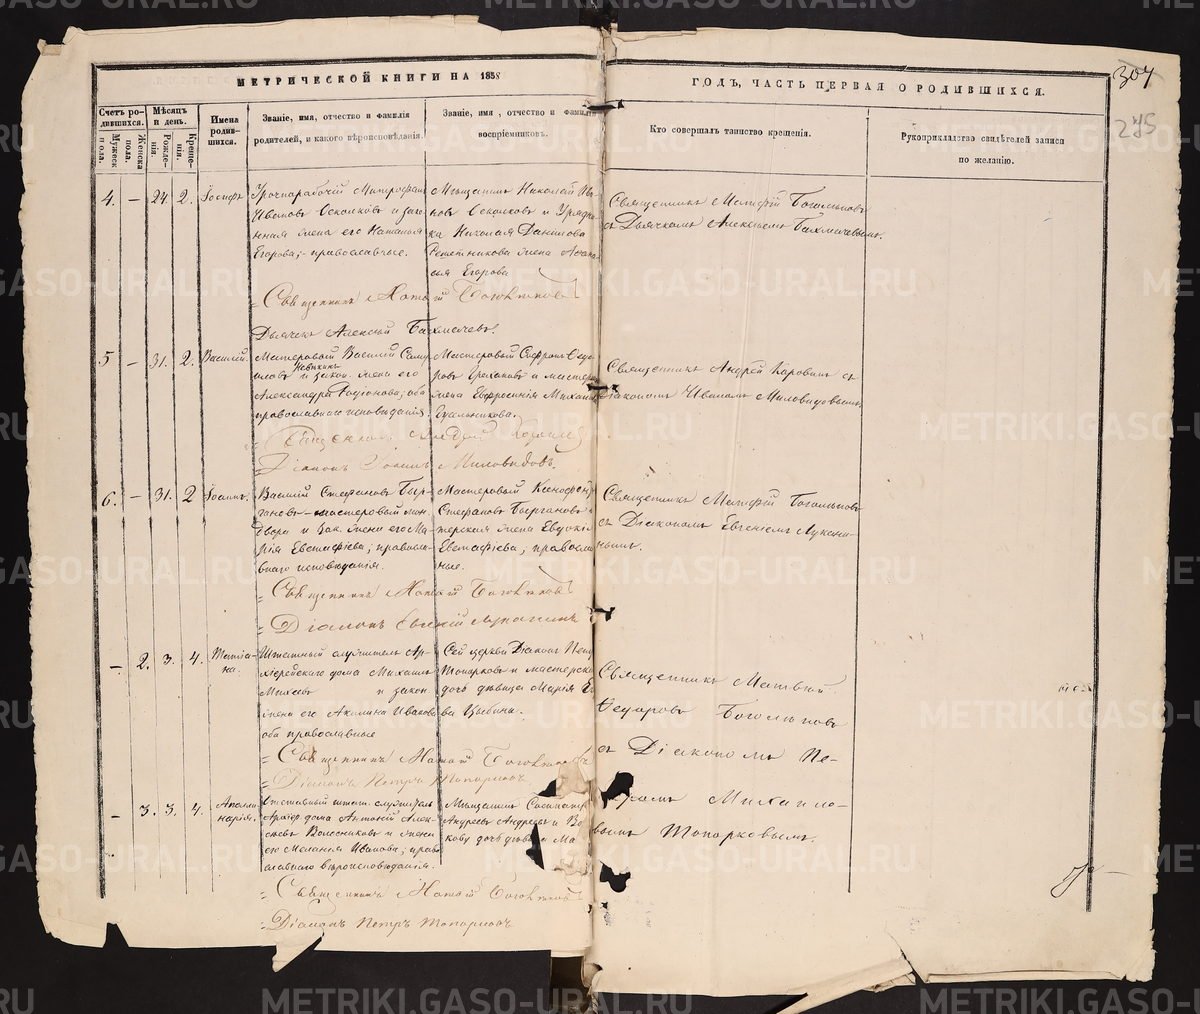 МЕТРИЧЕСКОЙ КНИГИ НА 1858
ГОДЪ, ЧАСТЬ ПЕРВАЯ О РОДИВШИХСЯ.
307
275
Счетъ ро-
дившихся.
Мужеска
пола.
Женска
пола.
Мѣсяцъ
и день.
Рожде-
нія.
Креще-
нія.
Имена
родив-
шихся.
Званіе, имя, отчество и фамилія
родителей, и какого вѣроисповѣданія.
Званіе, имя, отчество и фамилія
воспріемниковъ.
Кто совершалъ таинство крещенія.
Рукоприкладство свидѣтелей записи
по желанію.
4. — 24. 2. Іосифъ
Урочнорабочій Митрофанъ
Ивановъ и зако-
нная жена его Наталья
Егорова; православные.
Мѣщанинъ Николай Ив-
новъ и Урядни-
ка Николая Данилова
Решетникова жена Афана-
сья Егорова
Священникъ Матфій Боголѣповъ
съ Дьячкомъ Алексѣемъ Бахмачевымъ.
Священникъ Матфій Боголѣповъ
Дьячекъ Алексѣй Бахмачевъ.
5 — 31. 2. Василій.
Мастеровый Василій Саму-
иловъ и закон. жена его
Александра Родіонова; оба
православнаго исповѣданія.
Мастеровый Софронъ Ѳедо-
ровъ и мастеров.
жена Евфросинія Михайл.
Священникъ Андрей Каровинъ съ
Діакономъ Иваномъ Миловидовымъ.
Священникъ Андрей
Діаконъ Іоаннъ Миловидовъ.
6. — 31. 2 Іоаннъ.
Василій Стефановъ Быр-
гановъ — мастеровый мон.
двора и зак. жена его Ма-
рія Евстафіева; правосла-
внаго исповѣданія.
Мастеровый Ксенофонтъ
Стефановъ Быргановъ и
жена Евдокія
Евстафіева; правосла-
вные.
Священникъ Матфій Боголѣповъ
съ Діакономъ Евгеніемъ Лукани-
нымъ.
Священникъ Матфій Боголѣповъ
Діаконъ Евгеній Луканинъ
— 2. 3. 4. Татіа-
на.
Штатный служитель Ар-
хіерейскаго дома Михаилъ
Михѣевъ и закон.
жена его Акилина Иванова
оба православные
Сей церкви Діаконъ Петръ
Топорковъ и мастерска
дочь дѣвица Марія
Священникъ Матвѣй
Ѳедоровъ Боголѣповъ
съ Діакономъ Пе-
тромъ Михайло-
вымъ Топорковымъ.
Священникъ Матфій Боголѣповъ
Діаконъ Петръ Топорковъ
— 3. 3. 4. Аполли-
нарія.
Отставный штат. служитель
Архіер. дома Антоній Алек-
сѣевъ Колесниковъ и жена
его Меланія Иванова; право-
славнаго вѣроисповѣданія.
Мѣщанинъ
Андреевъ Андреевъ и
дочь дѣвица
Священникъ Матфій Боголѣповъ
Діаконъ Петръ Топорковъ
METRIKI.GASO-URAL.RU